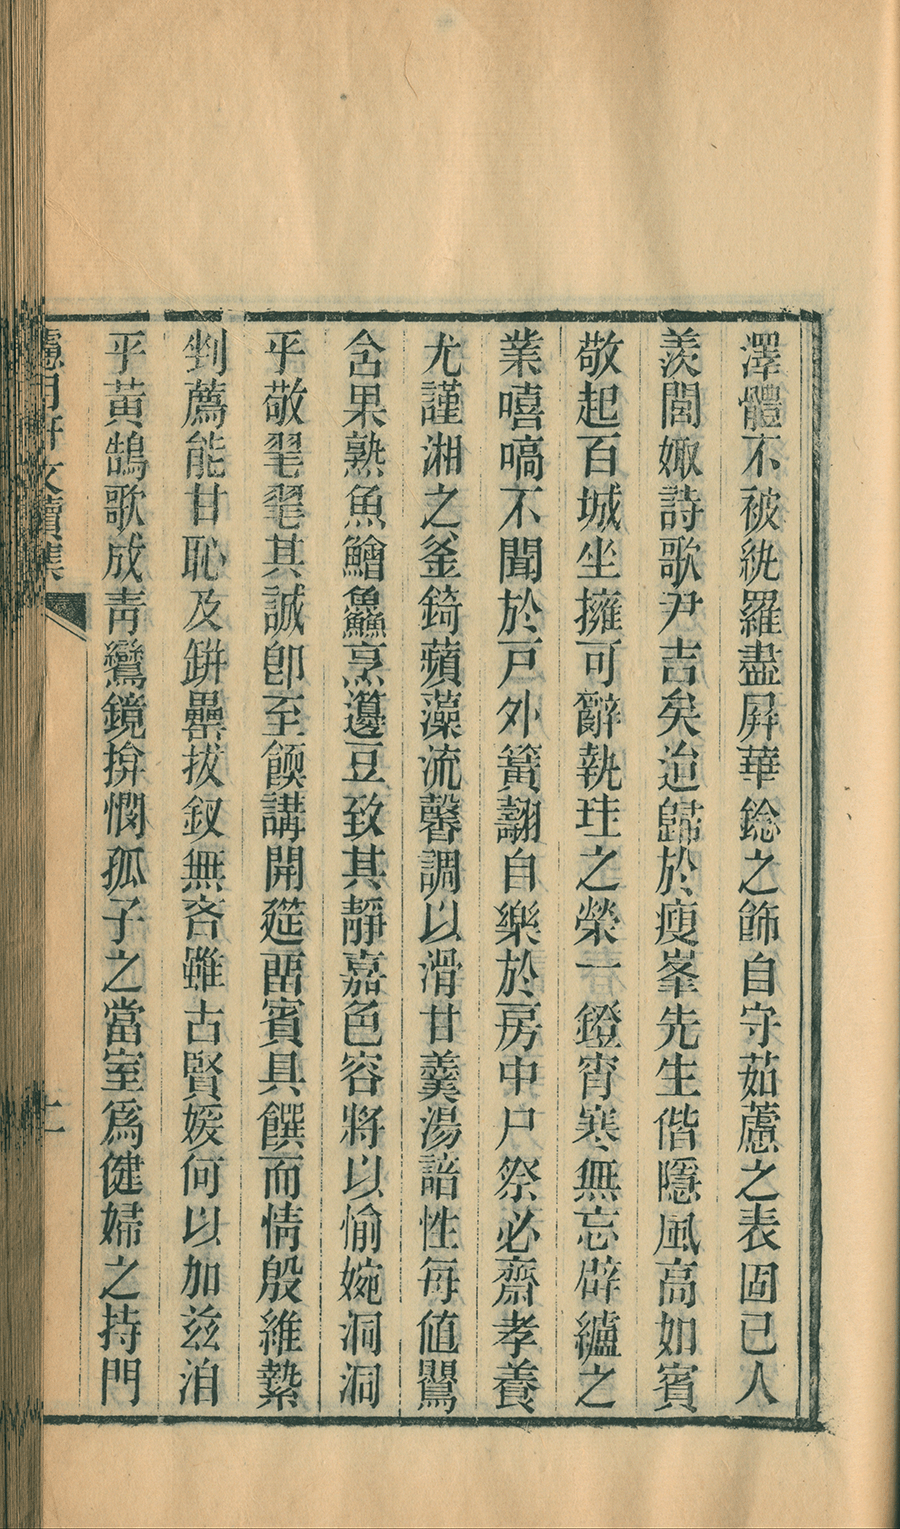 澤體不被紈羅盡屛華錜之飾自守茹藘之表固已人
羨閻娵詩歌尹吉矣迨歸於瘦峯先生偕隱風高如賓
敬起百城坐擁可辭執珪之榮一鐙宵寒無忘辟纑之
業嘻嗃不聞於戸外簧翿自樂於房中尸祭必齋孝養
尤謹湘之釜錡蘋藻流馨調以滑甘羹湯諳性每值鸎
含果熟魚鱠鱻烹籩豆致其靜嘉色容將以愉婉洞洞
乎敬毣毣其誠卽至餪講開筵畱賓具饌而情殷維縶
剉薦能甘恥及缾罍拔釵無吝雖古賢媛何以加兹洎
乎黃鵠歌成靑鸞鏡揜憫孤子之當室爲健婦之持門
文續集